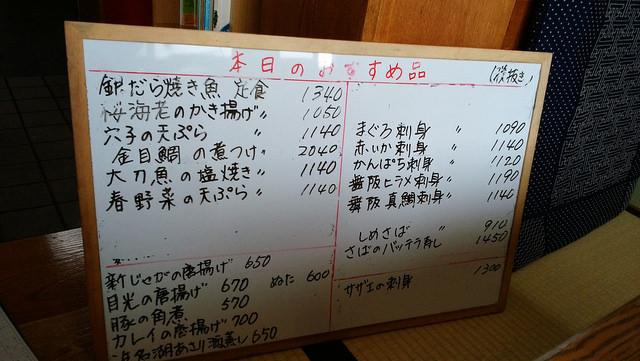 本日のおすすめ品 (税抜き)
銀だら焼き魚 定食 1340
桜海老のかき揚げ 〃 1050
穴子の天ぷら 〃 1140
金目鯛の煮つけ 〃 2040
大刀魚の塩焼き 〃 1140
春野菜の天ぷら 〃 1140
まぐろ刺身 〃 1090
赤いか刺身 〃 1140
かんぱち刺身 〃 1120
舞阪ヒラメ刺身 〃 1190
舞阪真鯛刺身 〃 1140
しめさば 〃 910
さばのバッテラ寿し 1450
新じゃがの唐揚げ 650
目光の唐揚げ 670 ぬた 600
豚の角煮 570
カレイの唐揚げ 700
浜名湖あさり酒蒸し 650
サザエの刺身 1300